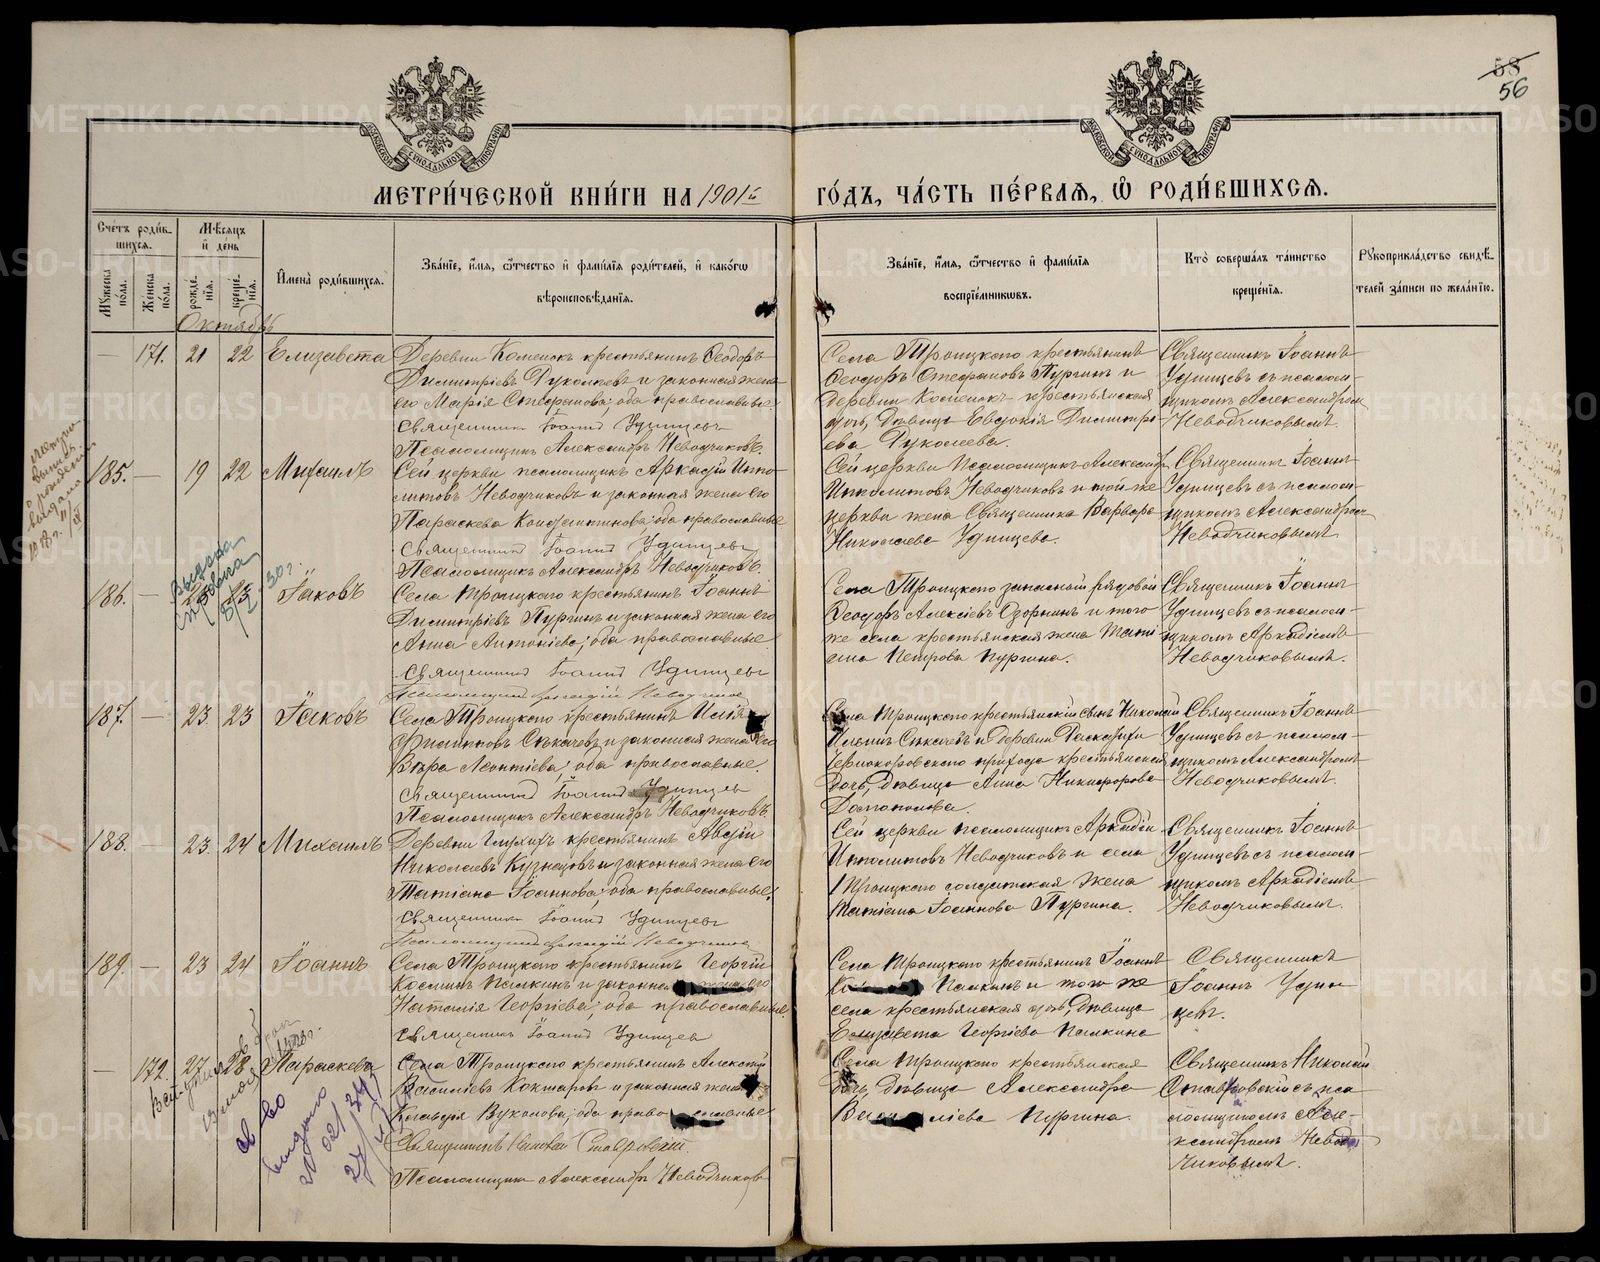 58
56
МОСКОВСКОЙ СУНОДАЛЬНОЙ ТИПОГРАФІИ
МОСКОВСКОЙ СУНОДАЛЬНОЙ ТИПОГРАФІИ
МЕТРИ́ЧЕСКОЙ КНИ́ГИ НА 1901й ГО́ДЪ, ЧА́СТЬ ПЕ́РВАѦ, Ѡ҆ РОДИ́ВШИХСѦ.
Сче́тъ роди́вшихся.
Мѣ́сяцъ и҆ де́нь
Му́жеска по́ла.
Же́нска по́ла.
рожде́нїя.
креще́нїя.
И҆мена̀ роди́вшихся.
Зва́нїе, и҆́мя, ѻ҆́тчество и҆ фами́лїя роди́телей, и҆ како́гѡ
вѣроисповѣ́данїя.
Зва́нїе, и҆́мя, ѻ҆́тчество и҆ фами́лїя
воспрїе́мниковъ.
Кто̀ соверша́лъ та́инство
креще́нїя.
Рукоприкла́дство свидѣ́телей за́писи по жела́нїю.
Октябрь
— 171. 21 22 Елизавета
Деревни крестьянинъ Ѳеодоръ
Димитріевъ и законная жена
его Марія Стефанова, оба православные.
Священникъ Іоаннъ Удинцевъ
Псаломщикъ Александръ Неводчиковъ.
Села Троицкого крестьянинъ
Ѳеодоръ Стефановъ Пургинъ и
деревни крестьянская
дочь, дѣвица Евдокія Димитрі-
ева
Священникъ Іоаннъ
Удинцевъ съ псалом-
щикомъ Александромъ
Неводчиковымъ.
185. — 19 22 Михаилъ
Сей церкви псаломщикъ Аркадій Иппо-
литовъ Неводчиковъ и законная жена его
Параскева Константинова, оба православные
Священникъ Іоаннъ Удинцевъ
Псаломщикъ Александръ Неводчиковъ.
Сей церкви Псаломщикъ Александръ
Ипполитовъ Неводчиковъ и той-же
церкви жена Священника Варвара
Николаева Удинцева.
Священникъ Іоаннъ
Удинцевъ съ псалом-
щикомъ Александромъ
Неводчиковымъ
186. — Іаковъ
Села Троицкого крестьянинъ Іоаннъ
Димитріевъ Пургинъ и законная жена его
Анна Антоніева, оба православные
Священникъ Іоаннъ Удинцевъ
Псаломщикъ Аркадій Неводчиковъ
Села Троицкого запасный рядовой
Ѳеодоръ Алексіевъ Озорнинъ и того
же села крестьянская жена Тати-
ана Петрова Пургина.
Священникъ Іоаннъ
Удинцевъ съ псалом-
щикомъ Аркадіемъ
Неводчиковымъ.
187. — 23 23 Іаковъ
Села Троицкого крестьянинъ Илія
Филипповъ Сѣкачевъ и законная жена его
Вѣра Леонтіева, оба православные.
Священникъ Іоаннъ Удинцевъ
Псаломщикъ Александръ Неводчиковъ.
Села Троицкого крестьянскій сынъ Николай
Иліинъ Сѣкачевъ и деревни
прихода крестьянская
дочь, дѣвица Анна Никифорова
Священникъ Іоаннъ
Удинцевъ съ псалом-
щикомъ Александромъ
Неводчиковымъ.
188. — 23. 24 Михаилъ
Деревни крестьянинъ Авдій
Николаевъ Кузнецовъ и законная жена его
Татіана Іоаннова, оба православные.
Священникъ Іоаннъ Удинцевъ
Псаломщикъ Аркадій Неводчиковъ
Сей церкви псаломщикъ Аркадій
Ипполитовъ Неводчиковъ и села
Троицкого солдатская жена
Татіана Іоаннова Пургина.
Священникъ Іоаннъ
Удинцевъ съ псалом-
щикомъ Аркадіемъ
Неводчиковымъ.
189. — 23 24 Іоаннъ
Села Троицкого крестьянинъ Георгій
Косминъ Пашкинъ и законная жена его
Наталія Георгіева, оба православные
Священникъ Іоаннъ Удинцевъ
Села Троицкого крестьянинъ Іоаннъ
Пашкинъ и того же
села крестьянская дочь, дѣвица
Елизавета Георгіева Пашкина
Священникъ
Іоаннъ Удин
цевъ.
— 172. 27 28 Параскева
Села Троицкого крестьянинъ Алексій
Василіевъ Кокшаровъ и законная жена
Клавдія Вуколова, оба православные
Священникъ Николай Ставровскій.
Псаломщикъ Александръ Неводчиковъ
Села Троицкого крестьянская
дочь, дѣвица Александра
Пургина.
Священникъ Николай
Ставровскій съ пса
ломщикомъ Але-
ксандромъНевод
чиковымъ.
выдана
1918 г.
св-во
выдано
METRIKI.GASO-URAL.RU